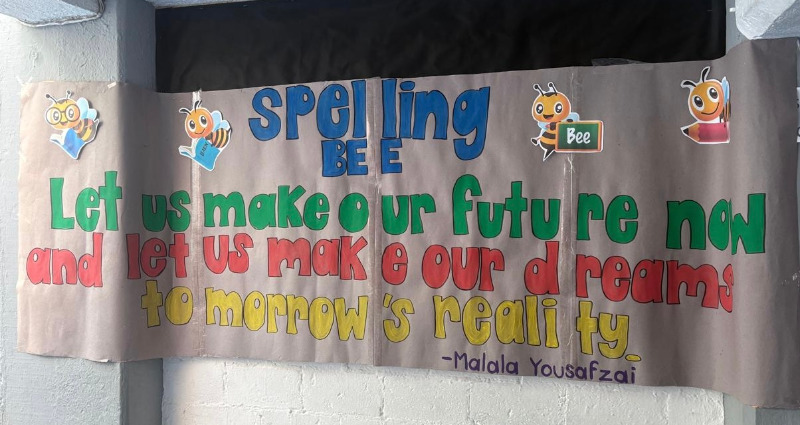 Spelling
BEE
Bee
Let us make our future now
and let us make our dreams
tomorrow's reality.
-Malala Yousafzai